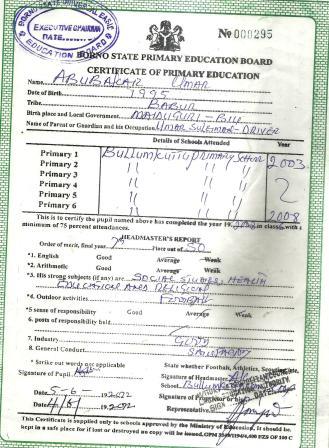 BORNO STATE UNIVERSAL BASIC
EXECUTIVE CHAIRMAN
DATE
EDUCATION BOARD
No 000295
BORNO STATE PRIMARY EDUCATION BOARD
CERTIFICATE OF PRIMARY EDUCATION
Name ABUBAKAR UMAR
Date of Birth 1995
Tribe BABUR
Birth place and Local Government MAIDUGURI - BIU
Name of Parent or Guardian and his Occupation UMAR SULEIMAN - DRIVER
Details of Schools Attended Year
Primary 1 Bullumkutty Primary School 2003
Primary 2 " " "
Primary 3 " " "
Primary 4 " " "
Primary 5 " " "
Primary 6 " " " 2008
This is certify the pupil named above has completed the year 19 in class with a
minimum of 75 percent attendances.
HEADMASTER'S REPORT
Order of merit, final year 7th Place out of 50
*1. English Good Average Weak
*2. Arithmetic Good Average Weak
*3. His strong subjects (if any) are SOCIAL STUDIES, HEALTH
EDUCATION AND RELIGION
*4. Outdoor activities FOOTBALL
*5 sense of responsibility Good Average Weak
6. posts of responsibility held
7. Industry GOOD
8. General Conduct SATISFACTORY
* Strike out words not applicable State whether Football, Athletics, Scouting,
Signature of Pupil Signature of Headmaster
School Bullumkutty
Date 5-6- Signature of
Date 4/8/ Representative
This Certificate is supplied only to schools approved by the Ministry of Education. It should be
kept in a safe place for if lost or destroyed no copy will be issued.